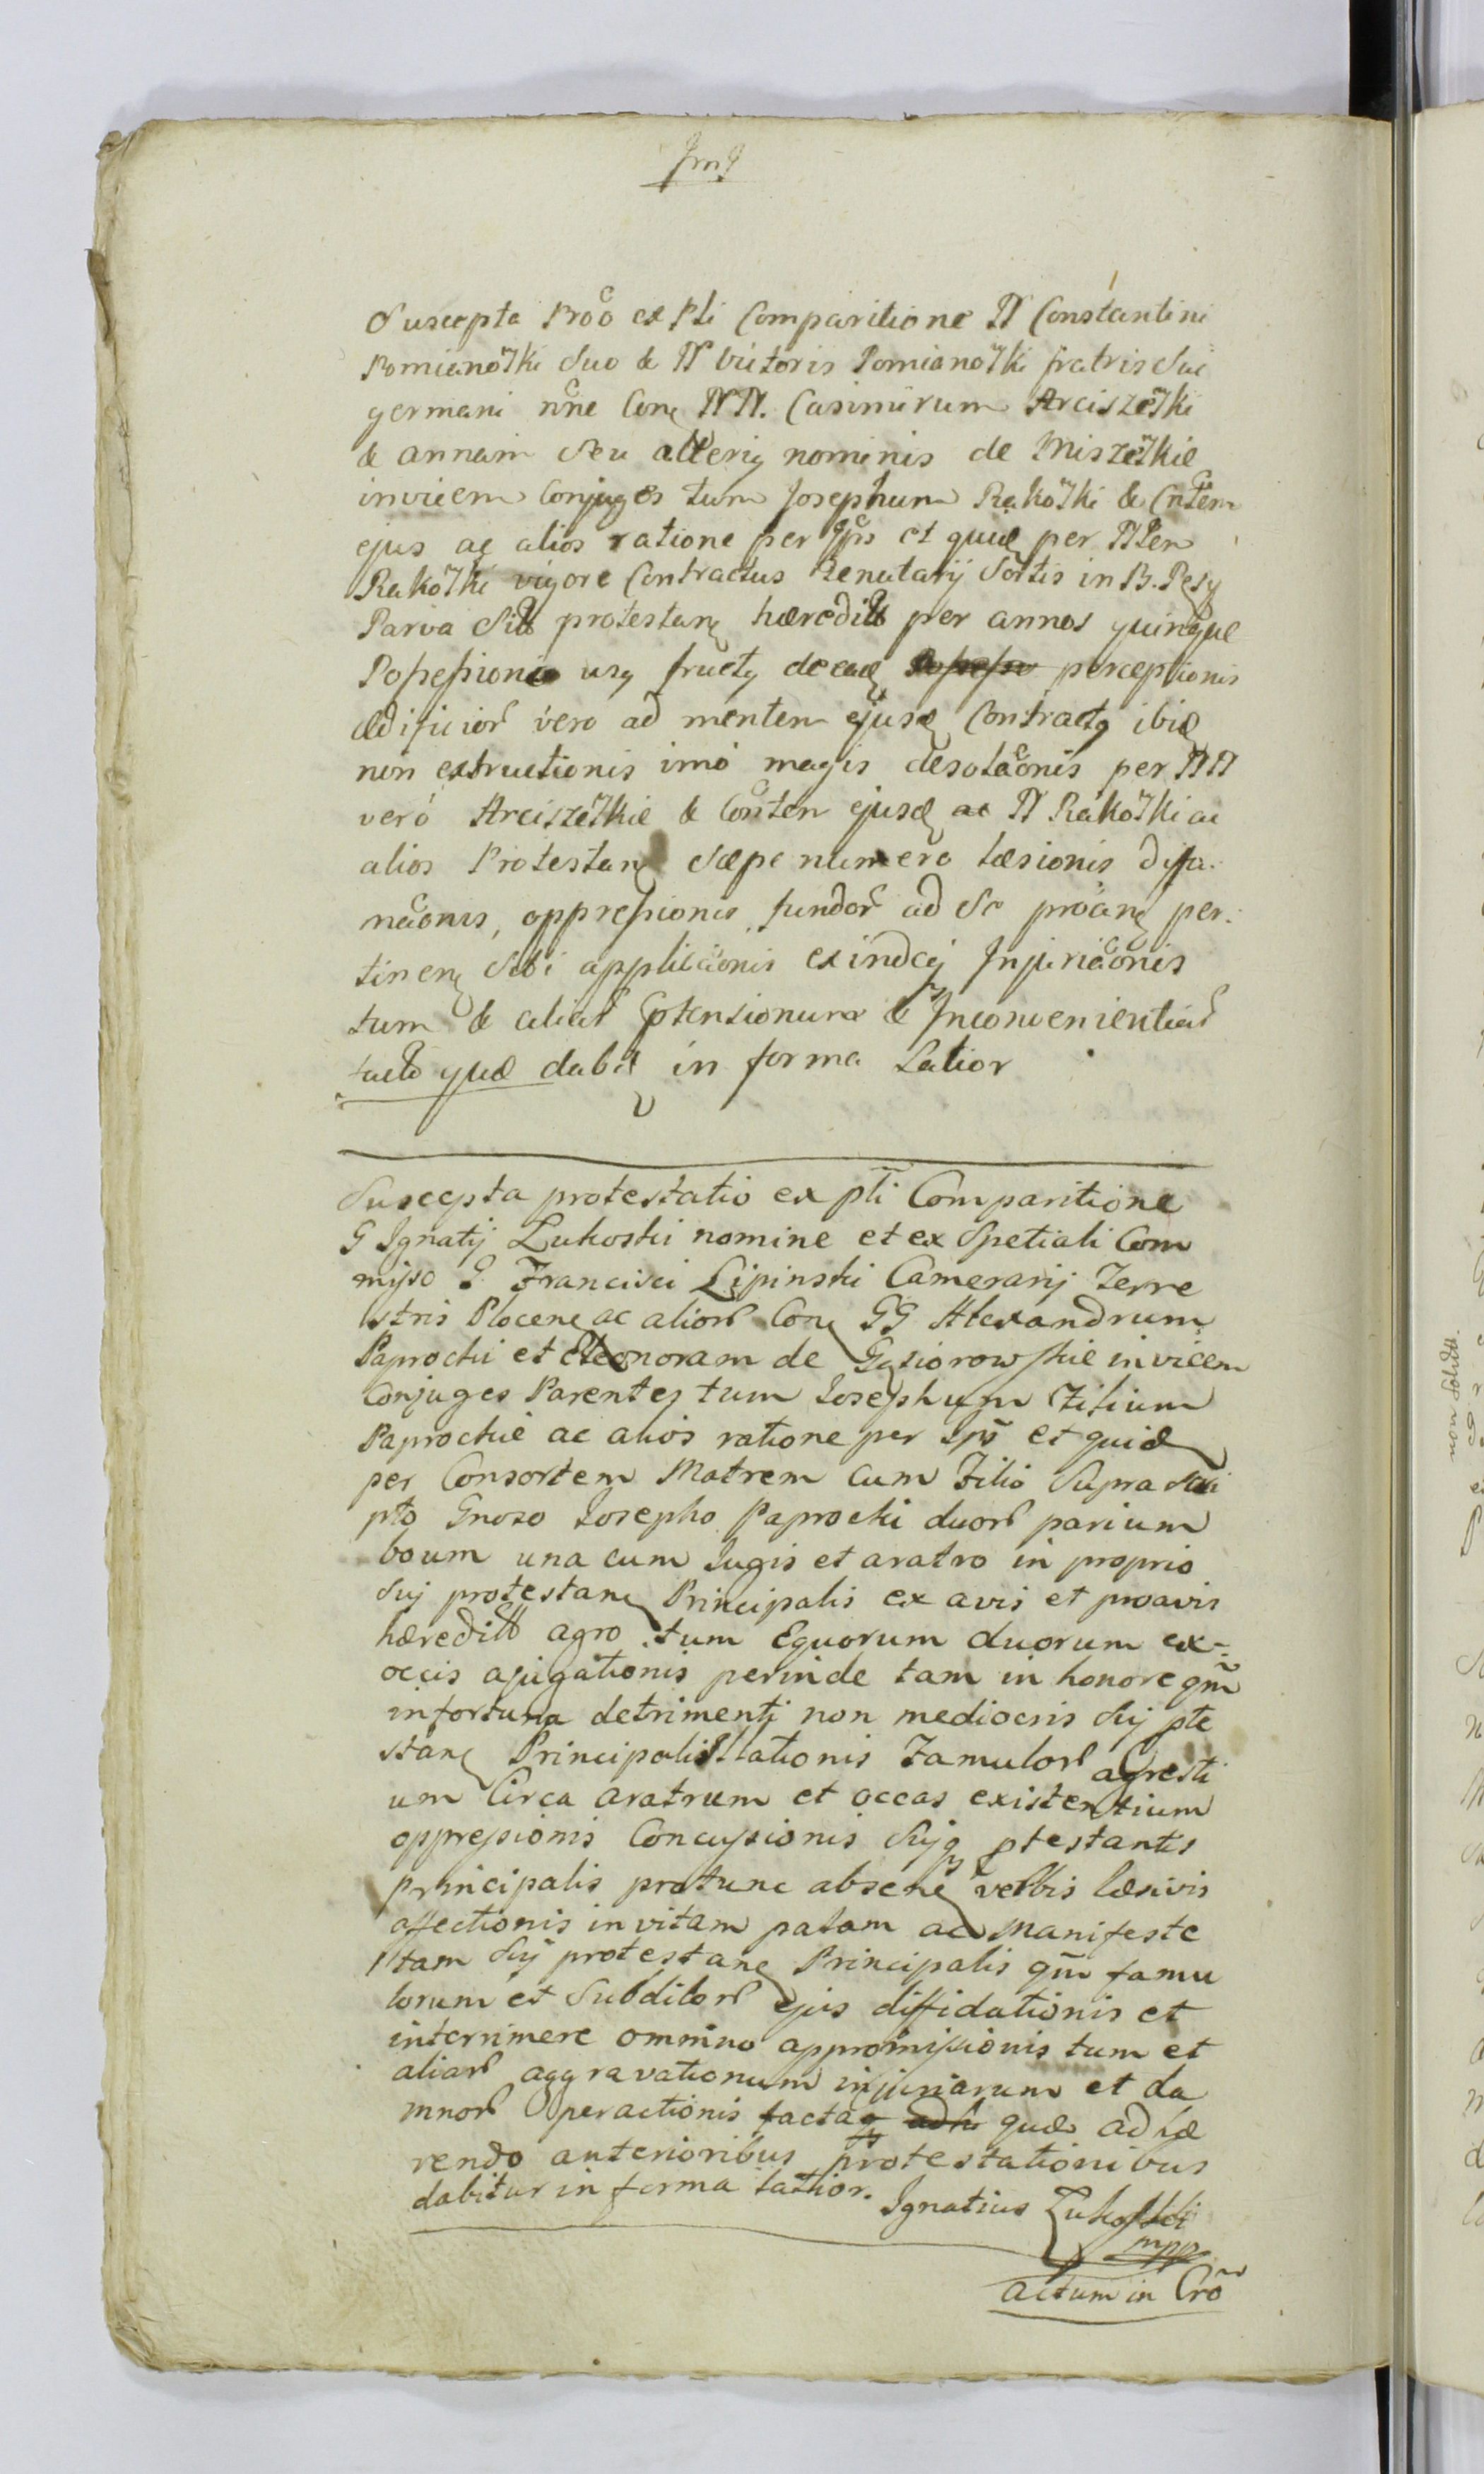 Suscepta Proo ex Pti Comparitione N Constantini
Pomianoski Suo & N Victoris Pomianoski fratris Sui
germani nne Con NN. Casimirum Arciszeski
& annam Seu alterig nominis de Miszeskie
invicem Conjuges tum Josephum Rakoski & Cntem
ejus ac alios ratione per Ips et quid per Nlen
Rakoski vigore Contractus Tenutarij Sortis in B. Pesy
Parva Sitt protestan hæreditt per annos quinque
Possessionis usq fructq deead perceptionis
ædificior vero ad mentem ejusd Contractq ibid
non extructionis imo magis desolaonis per NN
vero Arciszeskie & Conten ejusd ac N Rakoski ac
alios Protestan Sæpe numero læsionis diffa-
maonis, oppressionis fundor ad Se proan per-
tinen Sibi applicaonis exindeq Injuriaonis
tum & aliar ptensionum & Inconvenientiar
facto quæ dabit in forma Latior
Suscepta protestatio ex pti Comparitione
G Ignatij Lukoski nomine et ex Spetiali Com
misso G Francisci Lipinski Camerarij Terre
stris Plocen ac alior Con GG Alexandrum
Paprocki et Eleonoram de Gąsiorowskie invicem
Conjuges Parentes tum Josephum Filium
Paprockie ac alios ratione per Ips et quid
per Consortem Matrem cum Filio Supra scri
pto Groso Josepho Paprocki duor parium
boum una cum Jugis et aratro in proprio
Sui protestan Principalis ex avis et proavis
hæreditt agro tum Equorum duorum ex-
occis ajugationis perinde tam in honore qm
in fortuna detrimenti non mediocris Sui pte
stan Principalis Illationis Famulor agresti
um Circa aratrum et occas existentium
oppressionis Concussionis Suiq ptestantis
principalis protunc absen verbis læsivis
affectionis in vitam palam ac Manifeste
tam Sui protestan Principalis qm famu
lorum et Subditor ejus diffidationis et
interimere omnino appromissionis tum et
aliar aggravationum injuriarum et da
mnor peractionis factaq quæ adhæ
rendo anterioribus protestationibus
dabitur in forma latior.
Ignatius Lukoski
mpp
actum in Cro